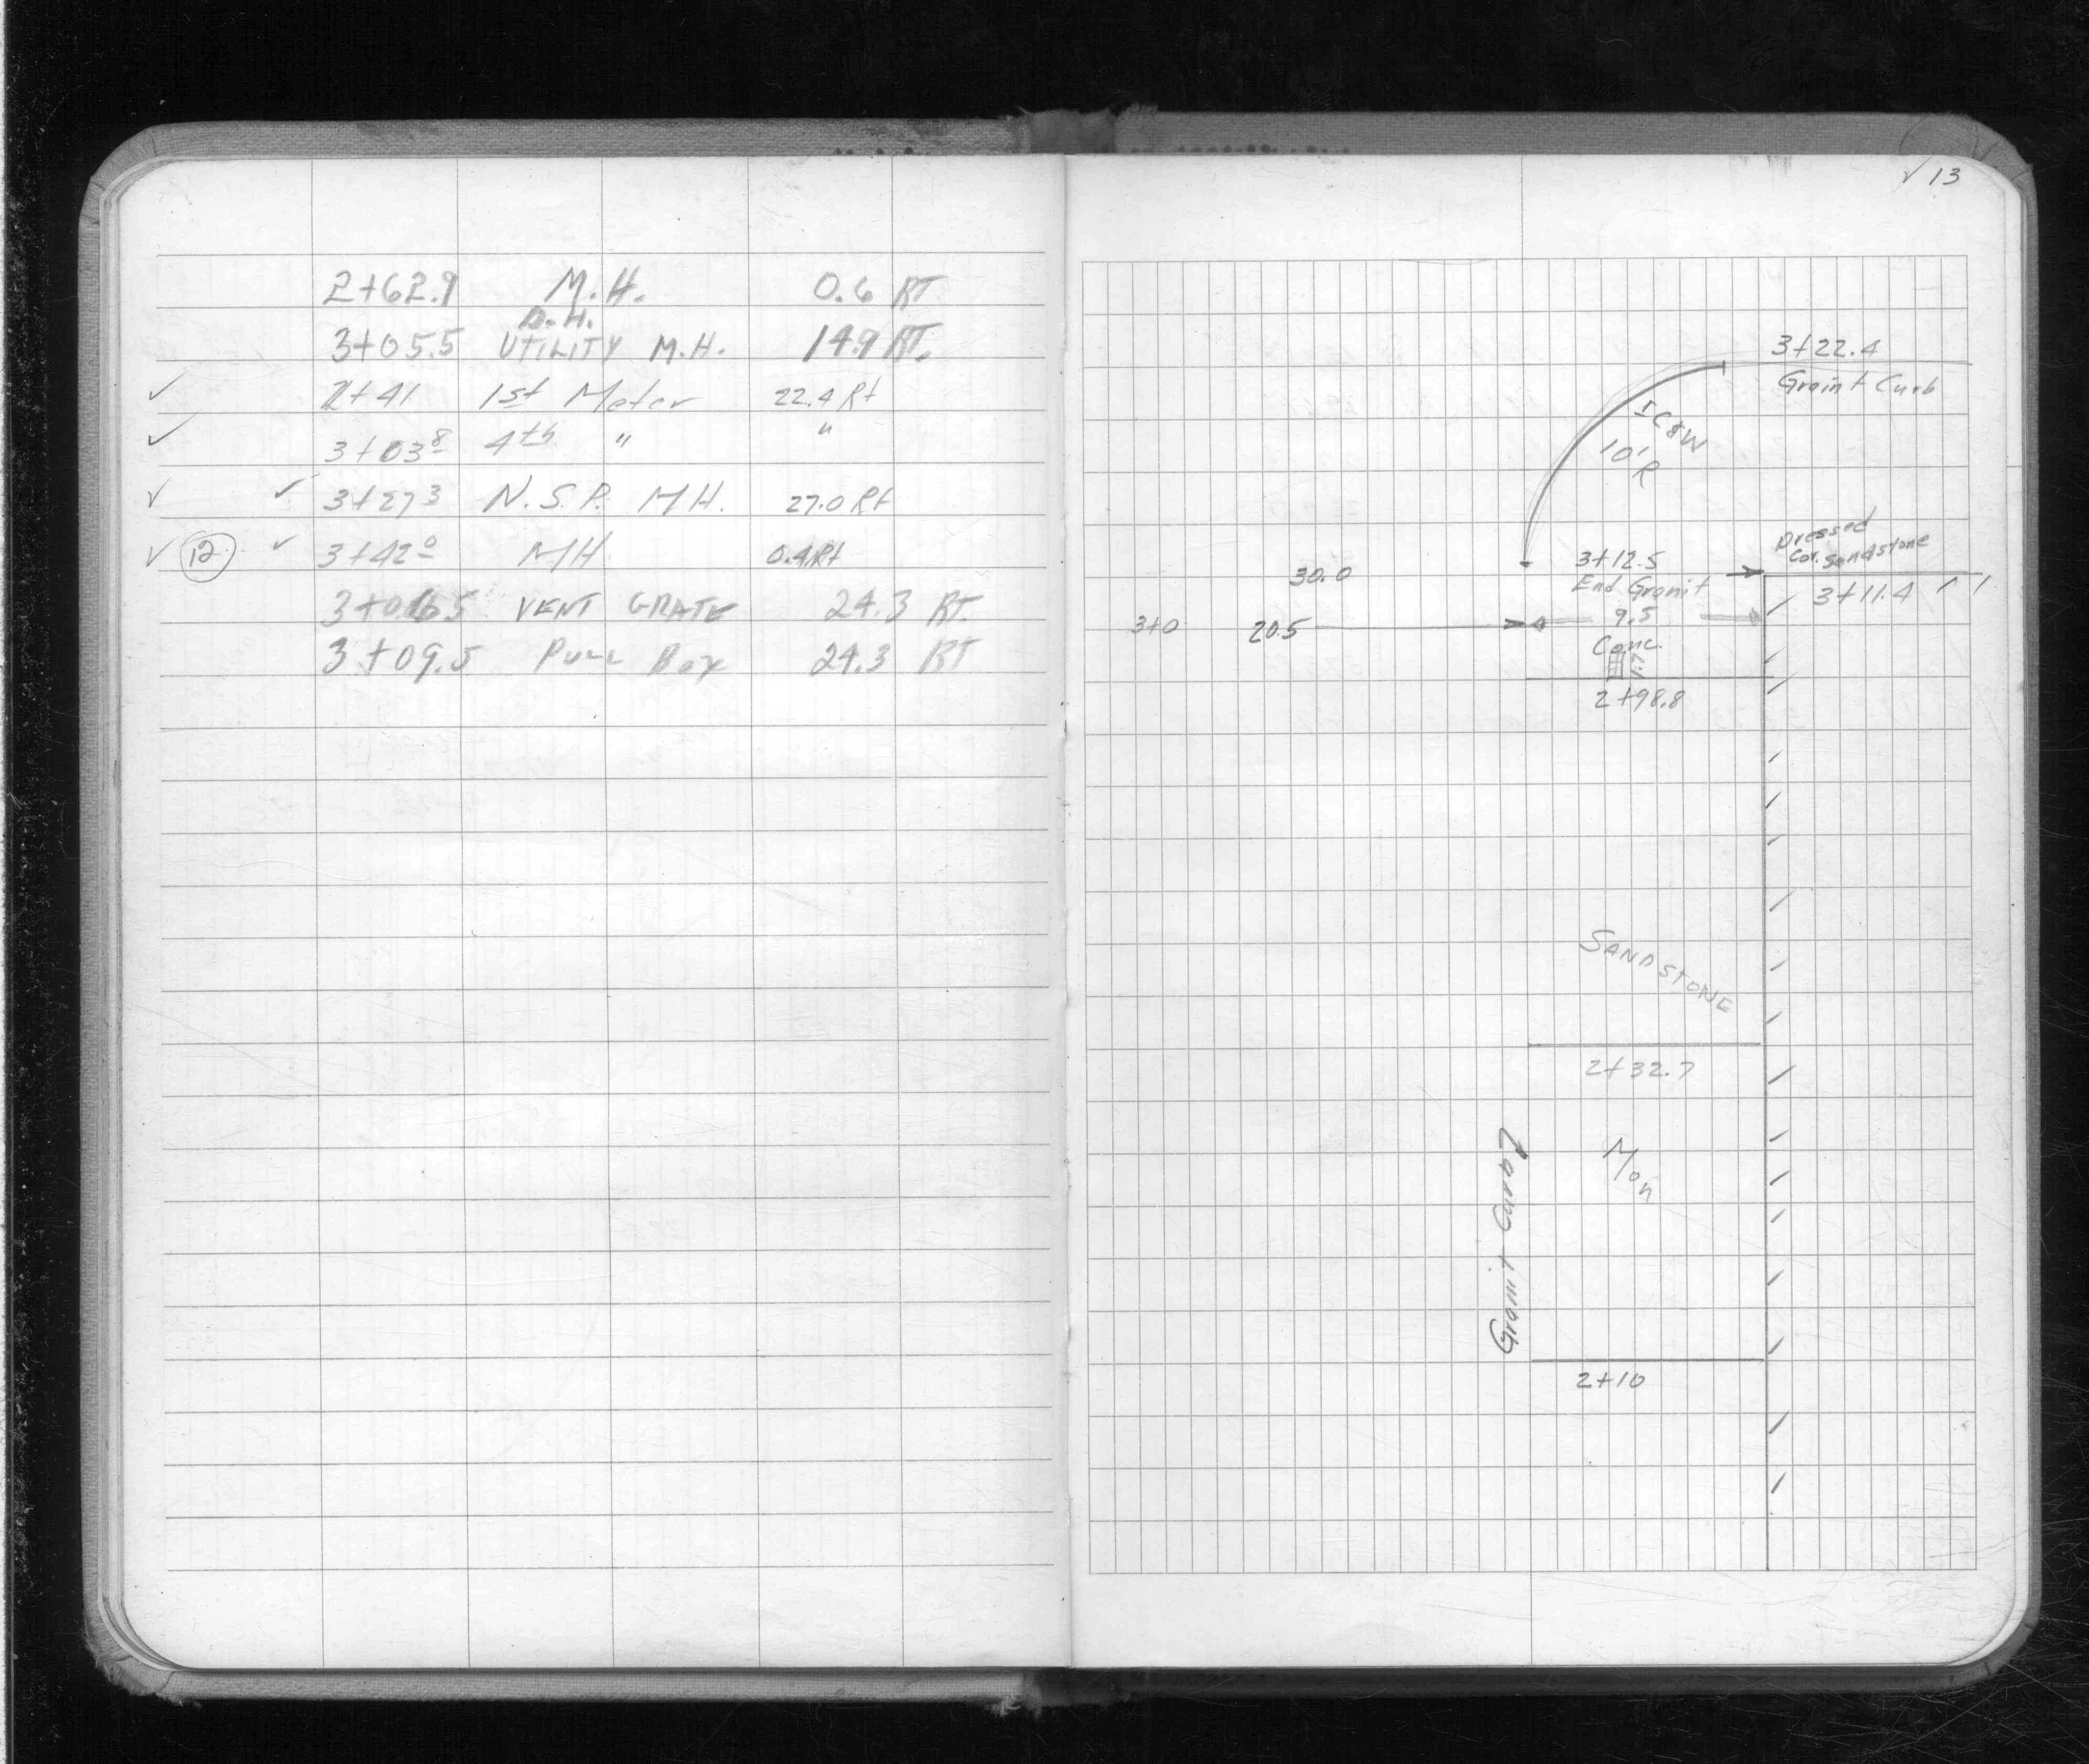 2+62.9 M.H. 0.6 RT
D.H.
3+05.5 UTILITY M.H. 14.9 RT.
✓ 2+41 1st Meter 22.4 Rt
✓ 3+03 8 4th " "
✓ ✓ 3+27 3 N.S.P. MH. 27.0 Rt
✓ 12 ✓ 3+42 0 MH 0.4 Rt
VENT GRATE 24.3 RT.
3+09.5 PULL Box 24.3 RT
✓ 13
3+22.4
Graint Curb
10'
R
Dressed
Cor. Sandstone
3+12.5
30.0
End Granit
3+11.4
9.5
3+0 20.5
Conc.
1.7
2+98.8
SANDSTONE
2+32.7
Mon
Granit Curb
2+10